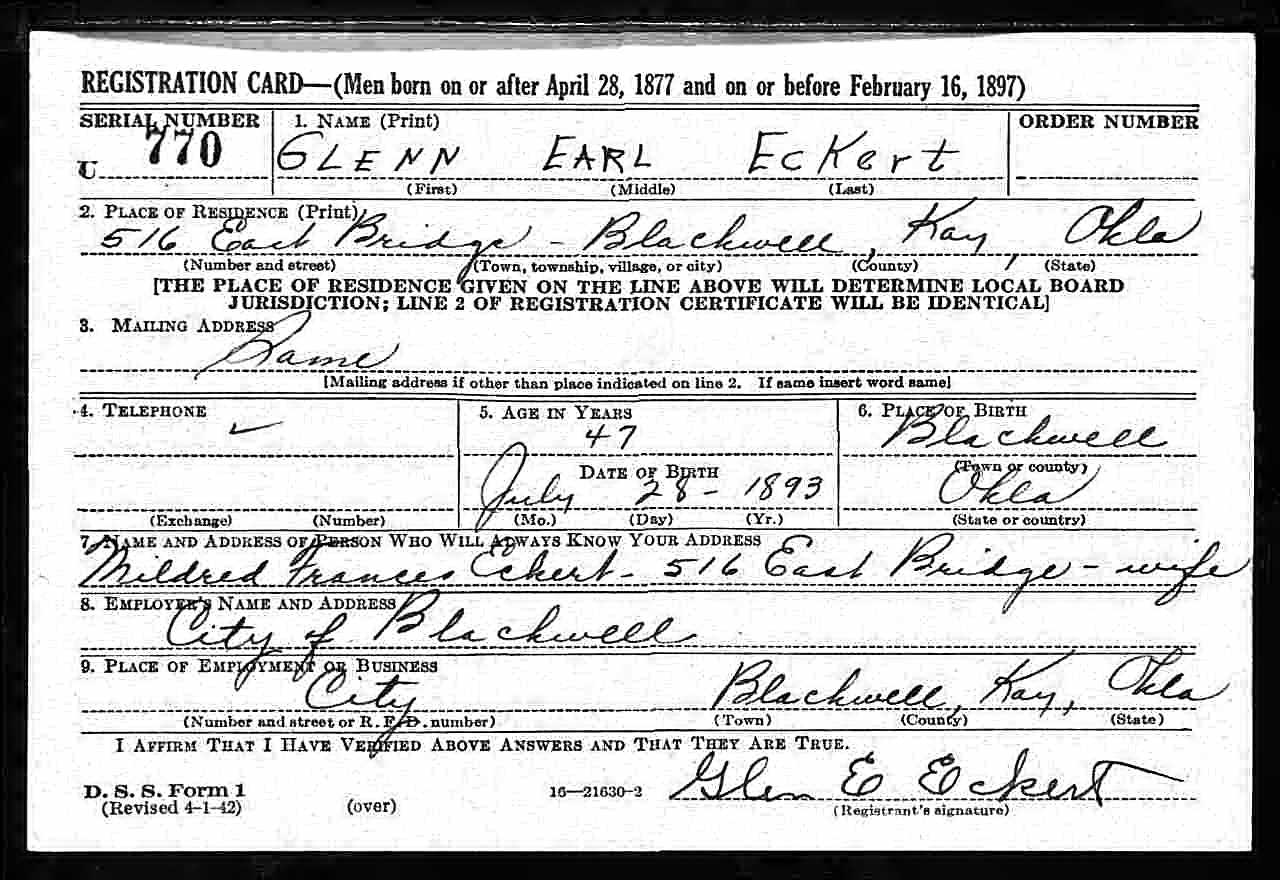 REGISTRATION CARD—(Men born on or after April 28, 1877 and on or before February 16, 1897)
SERIAL NUMBER 1. NAME (Print) ORDER NUMBER
U 770 GLENN EARL EcKert
(First) (Middle) (Last)
2. PLACE OF RESIDENCE (Print)
516 East Bridge - Blackwell, Kay, Okla
(Number and street) (Town, township, village, or city) (County) (State)
[THE PLACE OF RESIDENCE GIVEN ON THE LINE ABOVE WILL DETERMINE LOCAL BOARD
JURISDICTION; LINE 2 OF REGISTRATION CERTIFICATE WILL BE IDENTICAL]
3. MAILING ADDRESS
Same
[Mailing address if other than place indicated on line 2. If same insert word same]
4. TELEPHONE 5. AGE IN YEARS 6. PLACE OF BIRTH
47 Blackwell
DATE OF BIRTH (Town or county)
July 28 - 1893 Okla
(Exchange) (Number) (Mo.) (Day) (Yr.) (State or country)
7. NAME AND ADDRESS OF PERSON WHO WILL ALWAYS KNOW YOUR ADDRESS
Mildred Frances Eckert - 516 East Bridge - wife
8. EMPLOYER'S NAME AND ADDRESS
City of Blackwell
9. PLACE OF EMPLOYMENT OR BUSINESS
City Blackwell, Kay, Okla
(Number and street or R. F. D. number) (Town) (County) (State)
I AFFIRM THAT I HAVE VERIFIED ABOVE ANSWERS AND THAT THEY ARE TRUE.
Glen E Eckert
D. S. S. Form 1 16—21630-2
(Revised 4-1-42) (over) (Registrant's signature)